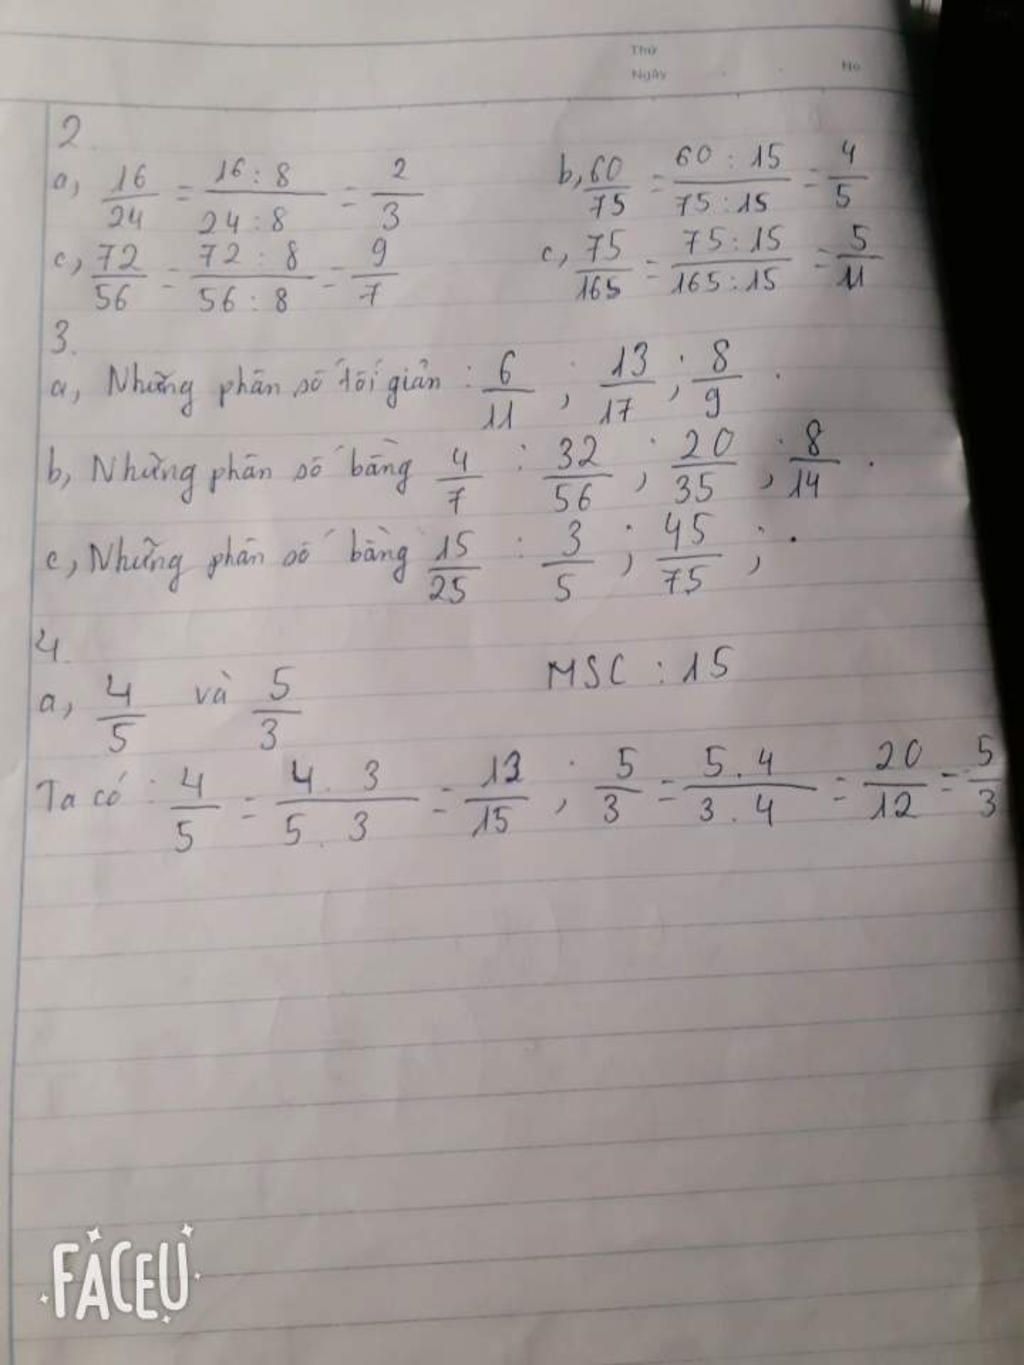 Thứ
Ngày No
2.
a, 16/24 = 16 : 8/24 : 8 = 2/3 b, 60/75 = 60 : 15/75 : 15 = 4/5
c, 72/56 = 72 : 8/56 : 8 = 9/7 c, 75/165 = 75 : 15/165 : 15 = 5/11
3.
a, Những phân số tối giản : 6/11 ; 13/17 ; 8/9 .
b, Những phân số bằng 4/7 : 32/56 ; 20/35 ; 8/14 .
c, Những phân số bằng 15/25 : 3/5 ; 45/75 ; .
4.
a, 4/5 và 5/3 MSC : 15
Ta có : 4/5 = 4 . 3/5 . 3 = 12/15 ; 5/3 = 5 . 4/3 . 4 = 20/12 = 5/3
FACEU